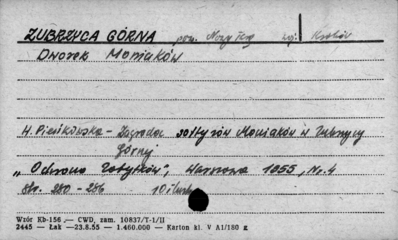 ZUBRZYCA GÓRNA pow. Nowy Targ woj. Kraków
Dworek Moniaków
H. Pieńkowska - Zagroda sołtysów Moniaków w Zubrzycy
Górnej
„Ochrona Zabytków", Warszawa 1955, Nr. 4
str. 280 - 286 10 ilustr.
Wzór Kb-156 — CWD, zam. 10837/T-1/II
2445 — Łak —23.8.55 — 1.460.000 — Karton kl. V A1/180 g